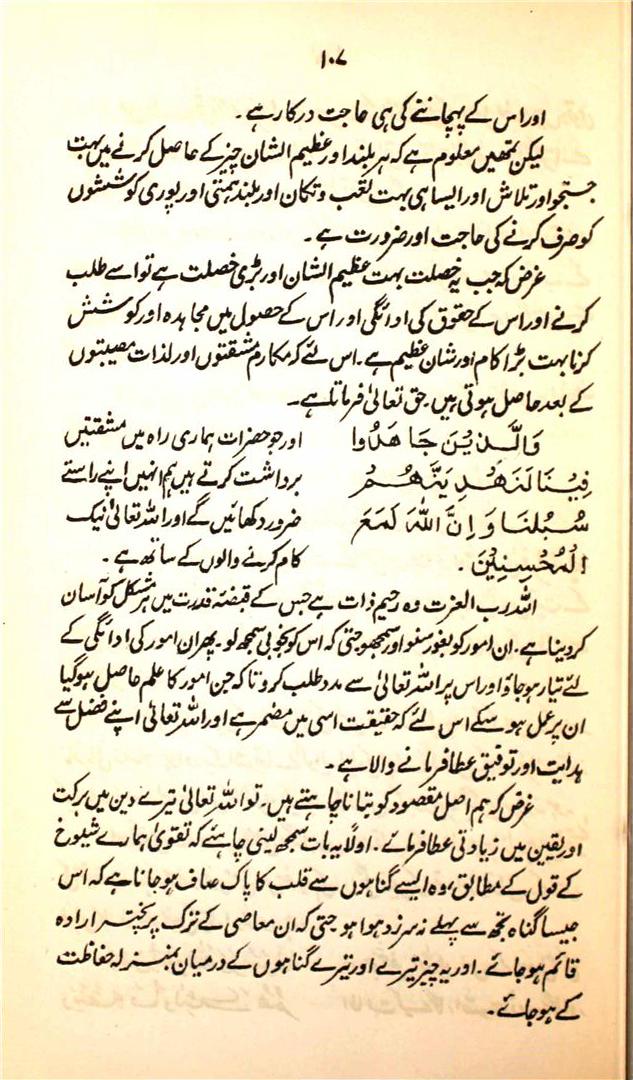 ۱۰۷
اور اس کے پہچاننے کی ہی حاجت درکار ہے۔
لیکن تمھیں معلوم ہے کہ ہر بلند اور عظیم الشان چیز کے حاصل کرنے میں بہت
جستجو اور تلاش اور ایسا ہی بہت تعب و تکان اور بلند ہمتی اور پوری کوششوں
کو صرف کرنے کی حاجت اور ضرورت ہے۔
غرض کہ جب یہ خصلت بہت عظیم الشان اور بڑی خصلت ہے تو اسے طلب
کرنے اور اس کے حقوق کی ادائگی اور اس کے حصول میں مجاہدہ اور کوشش
کرنا بہت بڑا کام اور شان عظیم ہے۔ اس لئے کہ مکارم مشقتوں اور لذات مصیبتوں
کے بعد حاصل ہوتی ہیں۔ حق تعالیٰ فرماتا ہے۔
وَالَّذِيْنَ جَاهَدُوا
فِيْنَا لَنَهْدِيَنَّهُمْ
سُبُلَنَا وَاِنَّ اللّٰهَ لَمَعَ
الْمُحْسِنِيْنَ۔
اور جو حضرات ہماری راہ میں مشقتیں
برداشت کرتے ہیں ہم انہیں اپنے راستے
ضرور دکھائیں گے اور اللہ تعالیٰ نیک
کام کرنے والوں کے ساتھ ہے۔
اللہ رب العزت وہ رحیم ذات ہے جس کے قبضۂ قدرت میں ہر مشکل کو آسان
کر دینا ہے۔ ان امور کو بغور سنو اور سمجھو حتی کہ اس کو بخوبی سمجھ لو۔ پھر ان امور کی ادائگی کے
لئے تیار ہو جاؤ اور اس پر اللہ تعالیٰ سے مدد طلب کرو تاکہ جن امور کا علم حاصل ہو گیا
ان پر عمل ہو سکے اس لئے کہ حقیقت اسی میں مضمر ہے اور اللہ تعالیٰ اپنے فضل سے
ہدایت اور توفیق عطا فرمانے والا ہے۔
غرض کہ ہم اصل مقصود کو بتانا چاہتے ہیں۔ تو اللہ تعالیٰ تیرے دین میں برکت
اور یقین میں زیادتی عطا فرمائے۔ اولاً یہ بات سمجھ لینی چاہئے کہ تقویٰ ہمارے شیوخ
کے قول کے مطابق، وہ ایسے گناہوں سے قلب کا پاک صاف ہو جانا ہے کہ اس
جیسا گناہ تجھ سے پہلے نہ سرزد ہوا ہو حتی کہ ان معاصی کے ترک پر پختہ ارادہ
قائم ہو جائے۔ اور یہ چیز تیرے اور تیرے گناہوں کے درمیان بمنزلہ حفاظت
کے ہو جائے۔